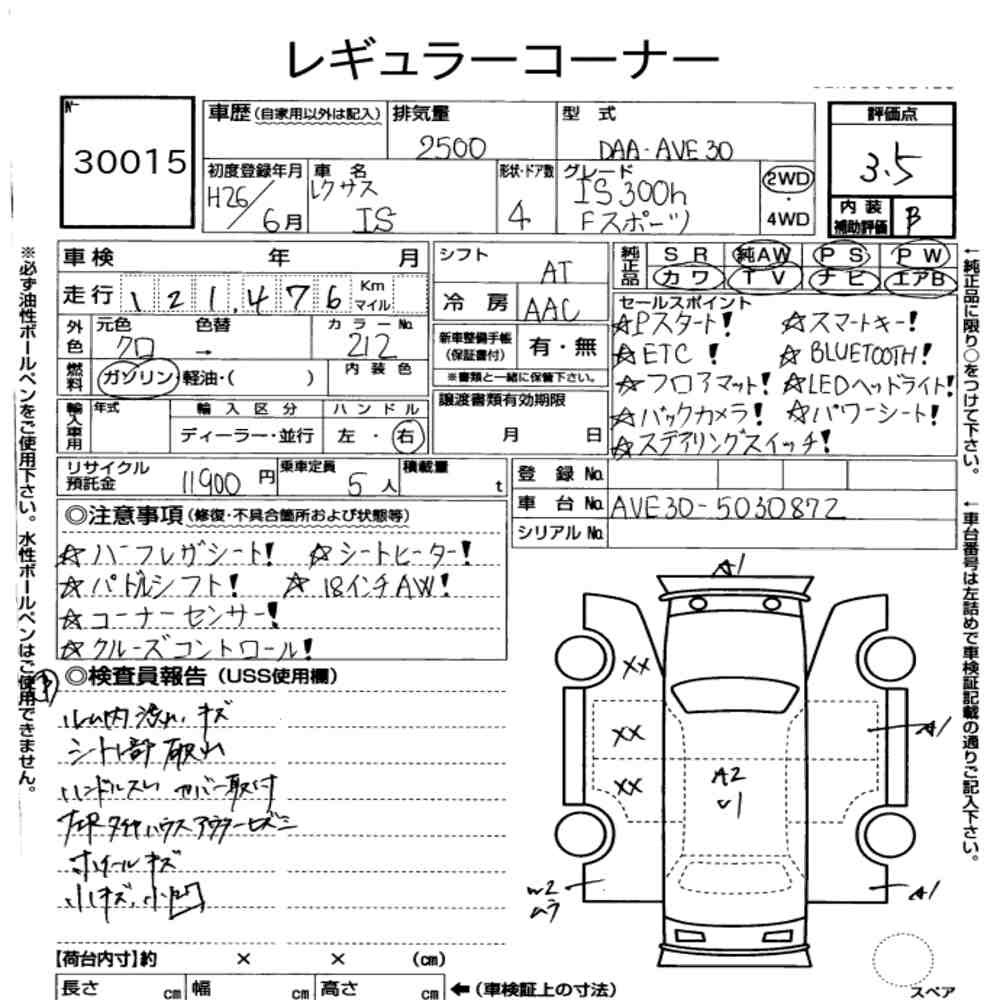 レギュラーコーナー
№
30015
車歴(自家用以外は記入)
排気量
2500
型 式
DAA-AVE30
評価点
3.5
初度登録年月
H26/6月
車 名
レクサス
IS
形状・ドア数
4
グレード
IS300h
Fスポーツ
2WD
・
4WD
内 装
補助評価
B
車検 年 月
走行 121,476 Km
マイル
シフト
AT
冷 房
AAC
純正品
SR 純AW PS PW
カワ TV ナビ エアB
外色
元色 色替
クロ →
カラーNo.
212
燃料
ガソリン・軽油・( )
内 装 色
新車整備手帳
(保証書付)
有・無
※書類と一緒に保管下さい。
セールスポイント
☆Pスタート! ☆スマートキー!
☆ETC! ☆BLUETOOTH!
☆フロアマット! ☆LEDヘッドライト!
☆バックカメラ! ☆パワーシート!
☆ステアリングスイッチ!
輸入車用
年式
輸 入 区 分
ディーラー・並行
ハ ン ド ル
左・右
譲渡書類有効期限
月 日
リサイクル
預託金
11900円
乗車定員
5人
積載量
t
登 録 No.
車 台 No. AVE30-5030872
シリアル No.
◎注意事項(修復・不具合箇所および状態等)
☆ハーフレザーシート! ☆シートヒーター!
☆パドルシフト! ☆18インチAW!
☆コーナーセンサー!
☆クルーズコントロール!
◎検査員報告(USS使用欄)
ルーム内汚れ、キズ
ハンドルスレ カバー取付
ホイールキズ
小キズ、小凹
A1
XX
XX
XX
A2
U1
A1
A1
W2
ムラ
スペア
【荷台内寸】約 × × (cm)
長さ cm 幅 cm 高さ cm ←(車検証上の寸法)
※必ず油性ボールペンをご使用下さい。水性ボールペンはご使用できません。
←純正品に限り○をつけて下さい。
←車台番号は左詰めで車検証記載の通りご記入下さい。